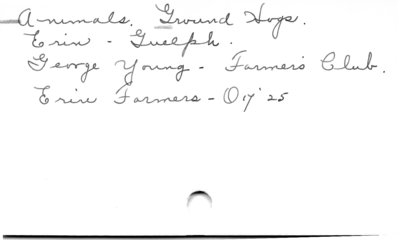 Animals. Ground Hogs.
Erin - Guelph.
George Young - Farmers Club.
Erin Farmers - O 17 '25